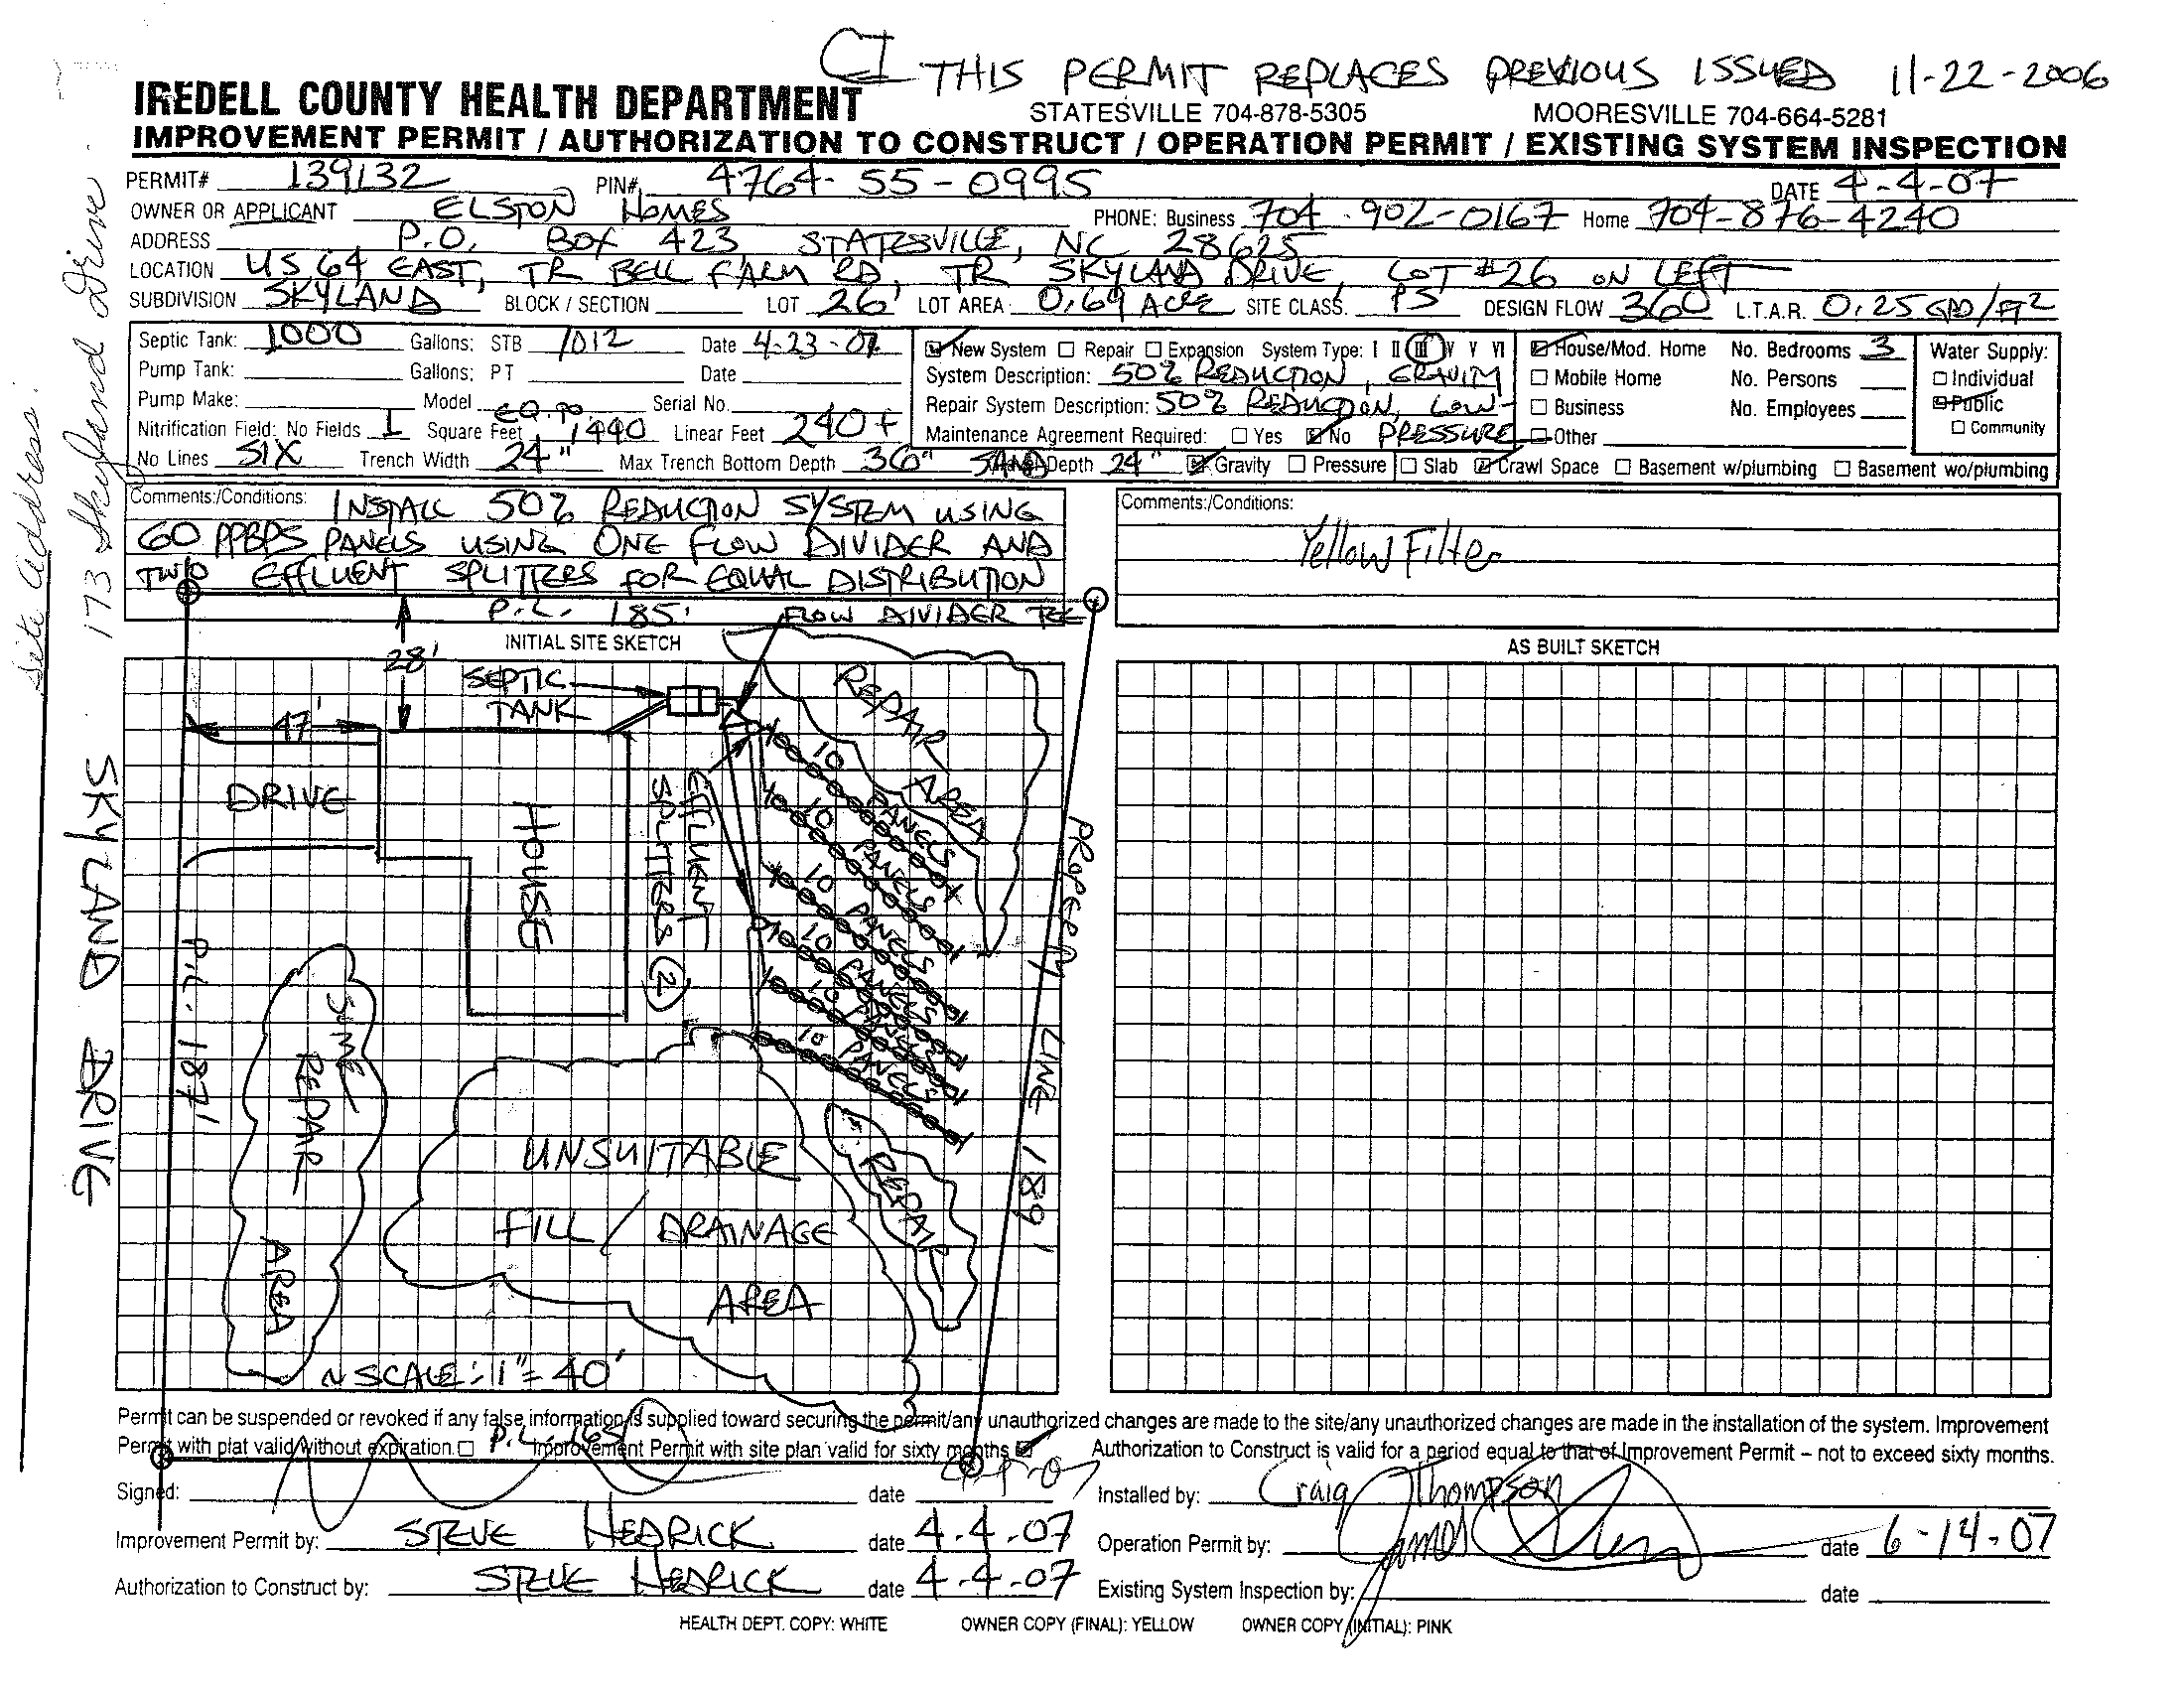 CI THIS PERMIT REPLACES PREVIOUS ISSUED 11-22-2006
IREDELL COUNTY HEALTH DEPARTMENT STATESVILLE 704-878-5305 MOORESVILLE 704-664-5281
IMPROVEMENT PERMIT / AUTHORIZATION TO CONSTRUCT / OPERATION PERMIT / EXISTING SYSTEM INSPECTION
PERMIT# 139132 PIN# 4764-55-0995 DATE 4-4-07
OWNER OR APPLICANT ELSTON HOMES PHONE: Business 704-902-0167 Home 704-876-4240
ADDRESS P.O. BOX 423, STATESVILLE, NC 28625
LOCATION US 64 EAST, TR BELL FARM RD, TR SKYLAND DRIVE, LOT #26 ON LEFT
SUBDIVISION SKYLAND BLOCK / SECTION LOT 26 LOT AREA 0.69 ACRE SITE CLASS. PS DESIGN FLOW 360 L.T.A.R. 0.25 GPD/FT2
Septic Tank: 1000 Gallons: STB 1012 Date 4-23-07
Pump Tank: Gallons: PT Date
Pump Make: Model Serial No.
Nitrification Field: No Fields 1 Square Feet EQ. 1440 Linear Feet 240+
No Lines SIX Trench Width 24" Max Trench Bottom Depth 36" SAND Depth 24" Gravity Pressure
New System Repair Expansion System Type: I II III IV V VI
System Description: 50% REDUCTION, GRAVITY
Repair System Description: 50% REDUCTION, LOW-
Maintenance Agreement Required: Yes No PRESSURE
House/Mod. Home No. Bedrooms 3
Mobile Home No. Persons
Business No. Employees
Other
Slab Crawl Space Basement w/plumbing Basement wo/plumbing
Water Supply:
Individual
Public
Community
Comments:/Conditions: INSTALL 50% REDUCTION SYSTEM USING
60 PPBPS PANELS USING ONE FLOW DIVIDER AND
TWO EFFLUENT SPLITTERS FOR EQUAL DISTRIBUTION
Comments:/Conditions:
Yellow Filter
P.L. 185' FLOW DIVIDER TEE
INITIAL SITE SKETCH
AS BUILT SKETCH
Site Address: 173 Skyland Drive
SKYLAND DRIVE
28'
SEPTIC TANK
47'
DRIVE
HOUSE
EFFLUENT SPLITTERS (2)
REPAIR AREA
10 PANELS
10 PANELS
10 PANELS
10 PANELS
10 PANELS
10 PANELS
PROPERTY LINE 189'
P.L. 187'
SOME REPAIR AREA
UNSUITABLE
FILL / DRAINAGE
AREA
REPAIR
~ SCALE: 1" = 40'
Permit can be suspended or revoked if any false information is supplied toward securing the permit/any unauthorized changes are made to the site/any unauthorized changes are made in the installation of the system. Improvement
Permit with plat valid without expiration. P.L. 165' Improvement Permit with site plan valid for sixty months Authorization to Construct is valid for a period equal to that of Improvement Permit – not to exceed sixty months.
Signed: date
Installed by: Craig Thompson
Improvement Permit by: STEVE HEDRICK date 4-4-07
Operation Permit by: James date 6-14-07
Authorization to Construct by: STEVE HEDRICK date 4-4-07
Existing System Inspection by: date
HEALTH DEPT. COPY: WHITE OWNER COPY (FINAL): YELLOW OWNER COPY (INITIAL): PINK